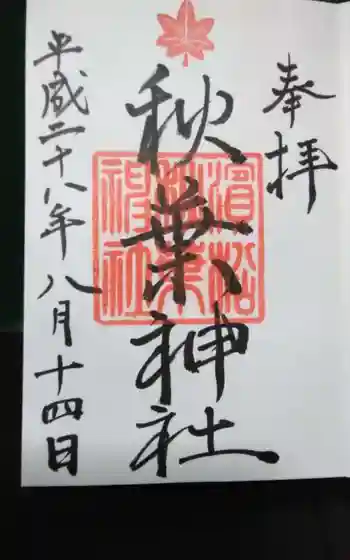 奉拝
秋葉神社
濱松
秋葉
神社
平成二十八年八月十四日